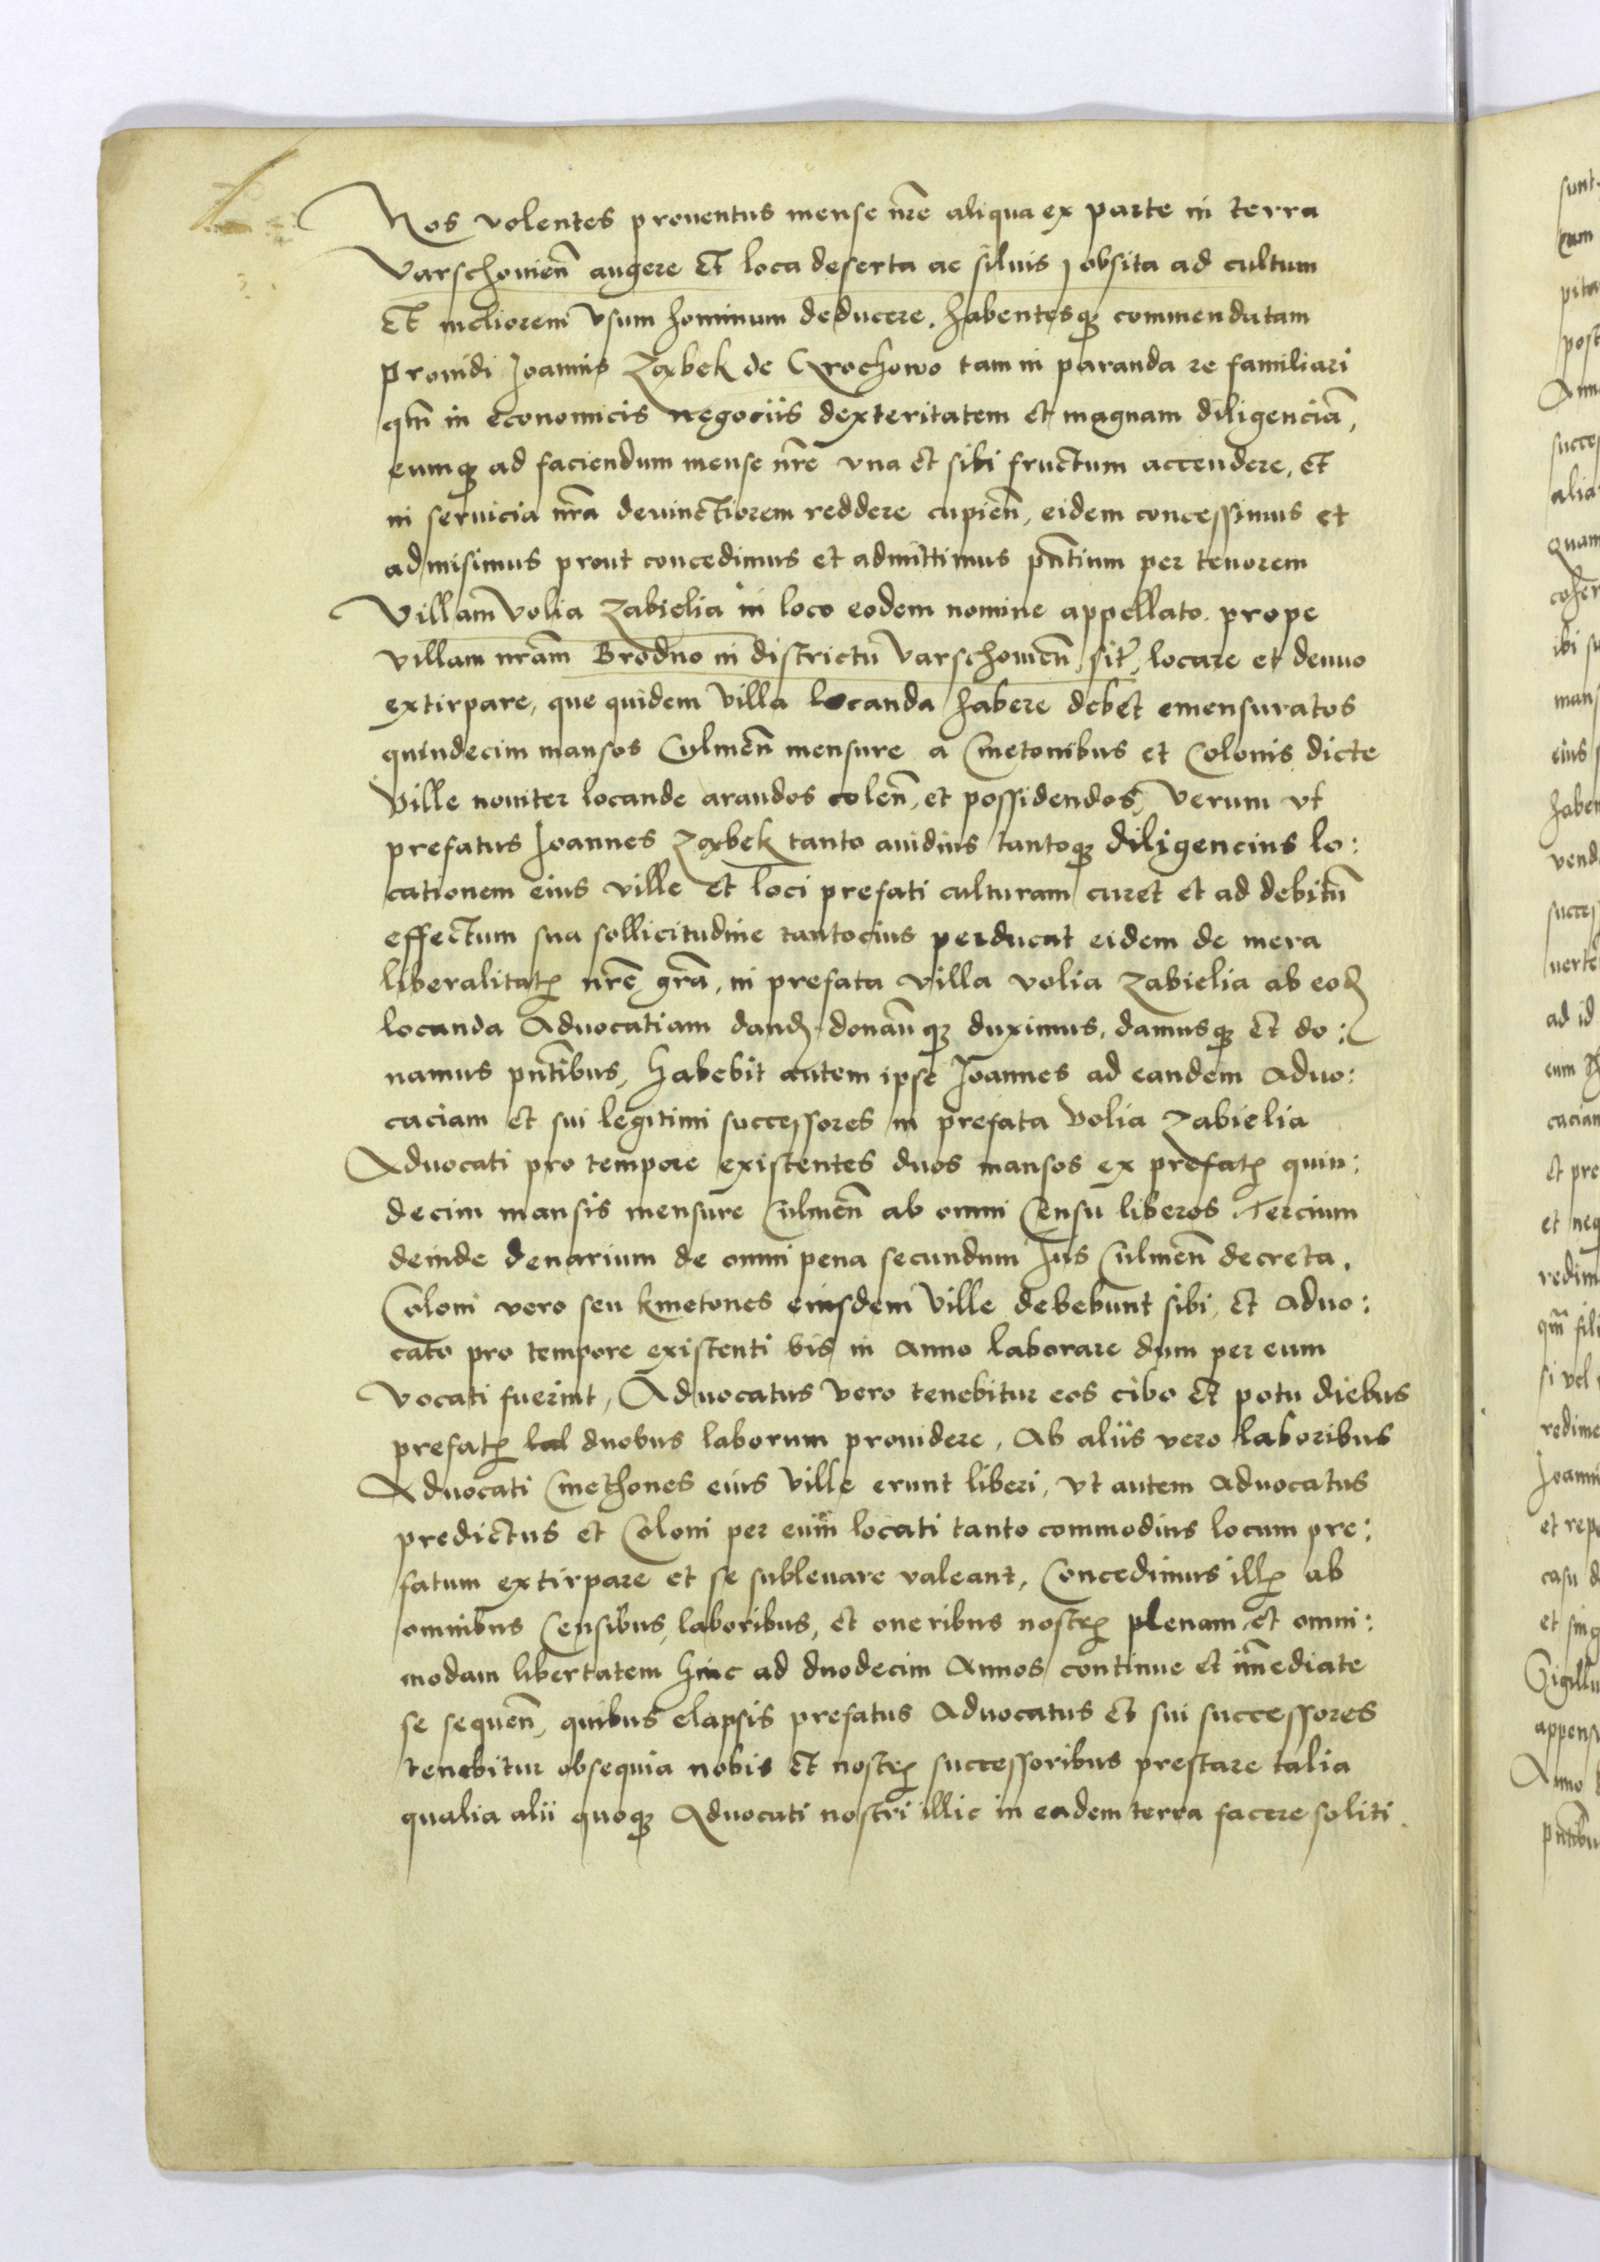 Nos volentes proventus mense nr̃e aliqua ex parte in terra
Varschovien̄ augere Et loca deserta ac silvis j obsita ad cultum
Et meliorem Vsum hominum deducere. habentesqꝫ commendatam
Providi Joannis Ząbek de Grochowo tam in paranda re familiari
qm̄ in economicis negociis dexteritatem et magnam diligenciā,
eumqꝫ ad faciendum mense nr̃e vna et sibi fructum accendere, Et
in servicia nr̃a devinctiorem reddere cupien̄, eidem concessimus et
admisimus prout concedimus et admittimus pñtium per tenorem
Villam Volia Zabielia in loco eodem nomine appellato. prope
villam nr̃am Brodno in districtu Varschovien̄ sit̃, locare et denuo
extirpare, que quidem Villa locanda habere debet emensuratos
quindecim mansos Culmen̄ mensure a Cmetonibus et Colonis dicte
Ville noviter locande arandos colen̄, et possidendos, Verum vt
prefatus Joannes Ząbek tanto avidius tantoqꝫ diligencius lo:
cationem eius ville Et loci prefati culturam curet et ad debitū
effectum sua sollicitudine tantocius perducat eidem de mera
liberalitatꝭ nr̃e gr̃a, in prefata villa volia Zabielia ab eođ
locanda Advocatiam danđ donan̄qꝫ duximus, damusqꝫ Et do:
namus pñtibus, habebit autem ipse Joannes ad eandem Advo:
caciam et sui legitimi successores in prefata Volia Zabielia
Advocati pro tempore existentes duos mansos ex prefatꝭ quin:
decim mansis mensure Culmen̄ ab omni Censu liberos Tercium
deinde denarium de omni pena secundum Jus Culmen̄ decreta.
Coloni vero seu kmetones eiusdem Ville debebunt sibi, et Advo:
cato pro tempore existenti bis in Anno laborare dum per eum
Vocati fuerint, Advocatus Vero tenebitur eos cibo Et potu diebus
prefatꝭ duobus laborum providere, Ab aliis vero laboribus
Advocati Cmethones eius Ville erunt liberi, vt autem Advocatus
predictus et Coloni per eum locati tanto commodius locum pre:
fatum extirpare et se sublevare valeant, Concedimus illꝭ ab
omnibus Censibus, laboribus, et oneribus nostrꝭ plenam et omni:
modam libertatem hinc ad duodecim Annos continue et im̄ediate
se sequen̄, quibus elapsis prefatus Advocatus et sui successores
tenebitur obsequia nobis Et nostrꝭ successoribus prestare talia
qualia alii quoqꝫ Advocati nostri illic in eadem terra facere soliti